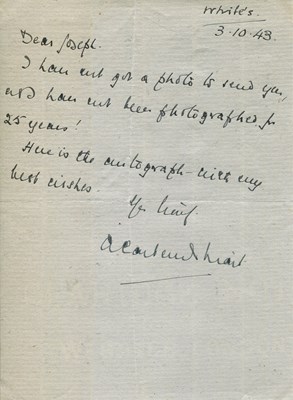 White's
3-10-43.
Dear Joseph.
I have not got a photo to send you,
and have not been photographed for
25 years!
Here is the autograph - with my
best wishes.